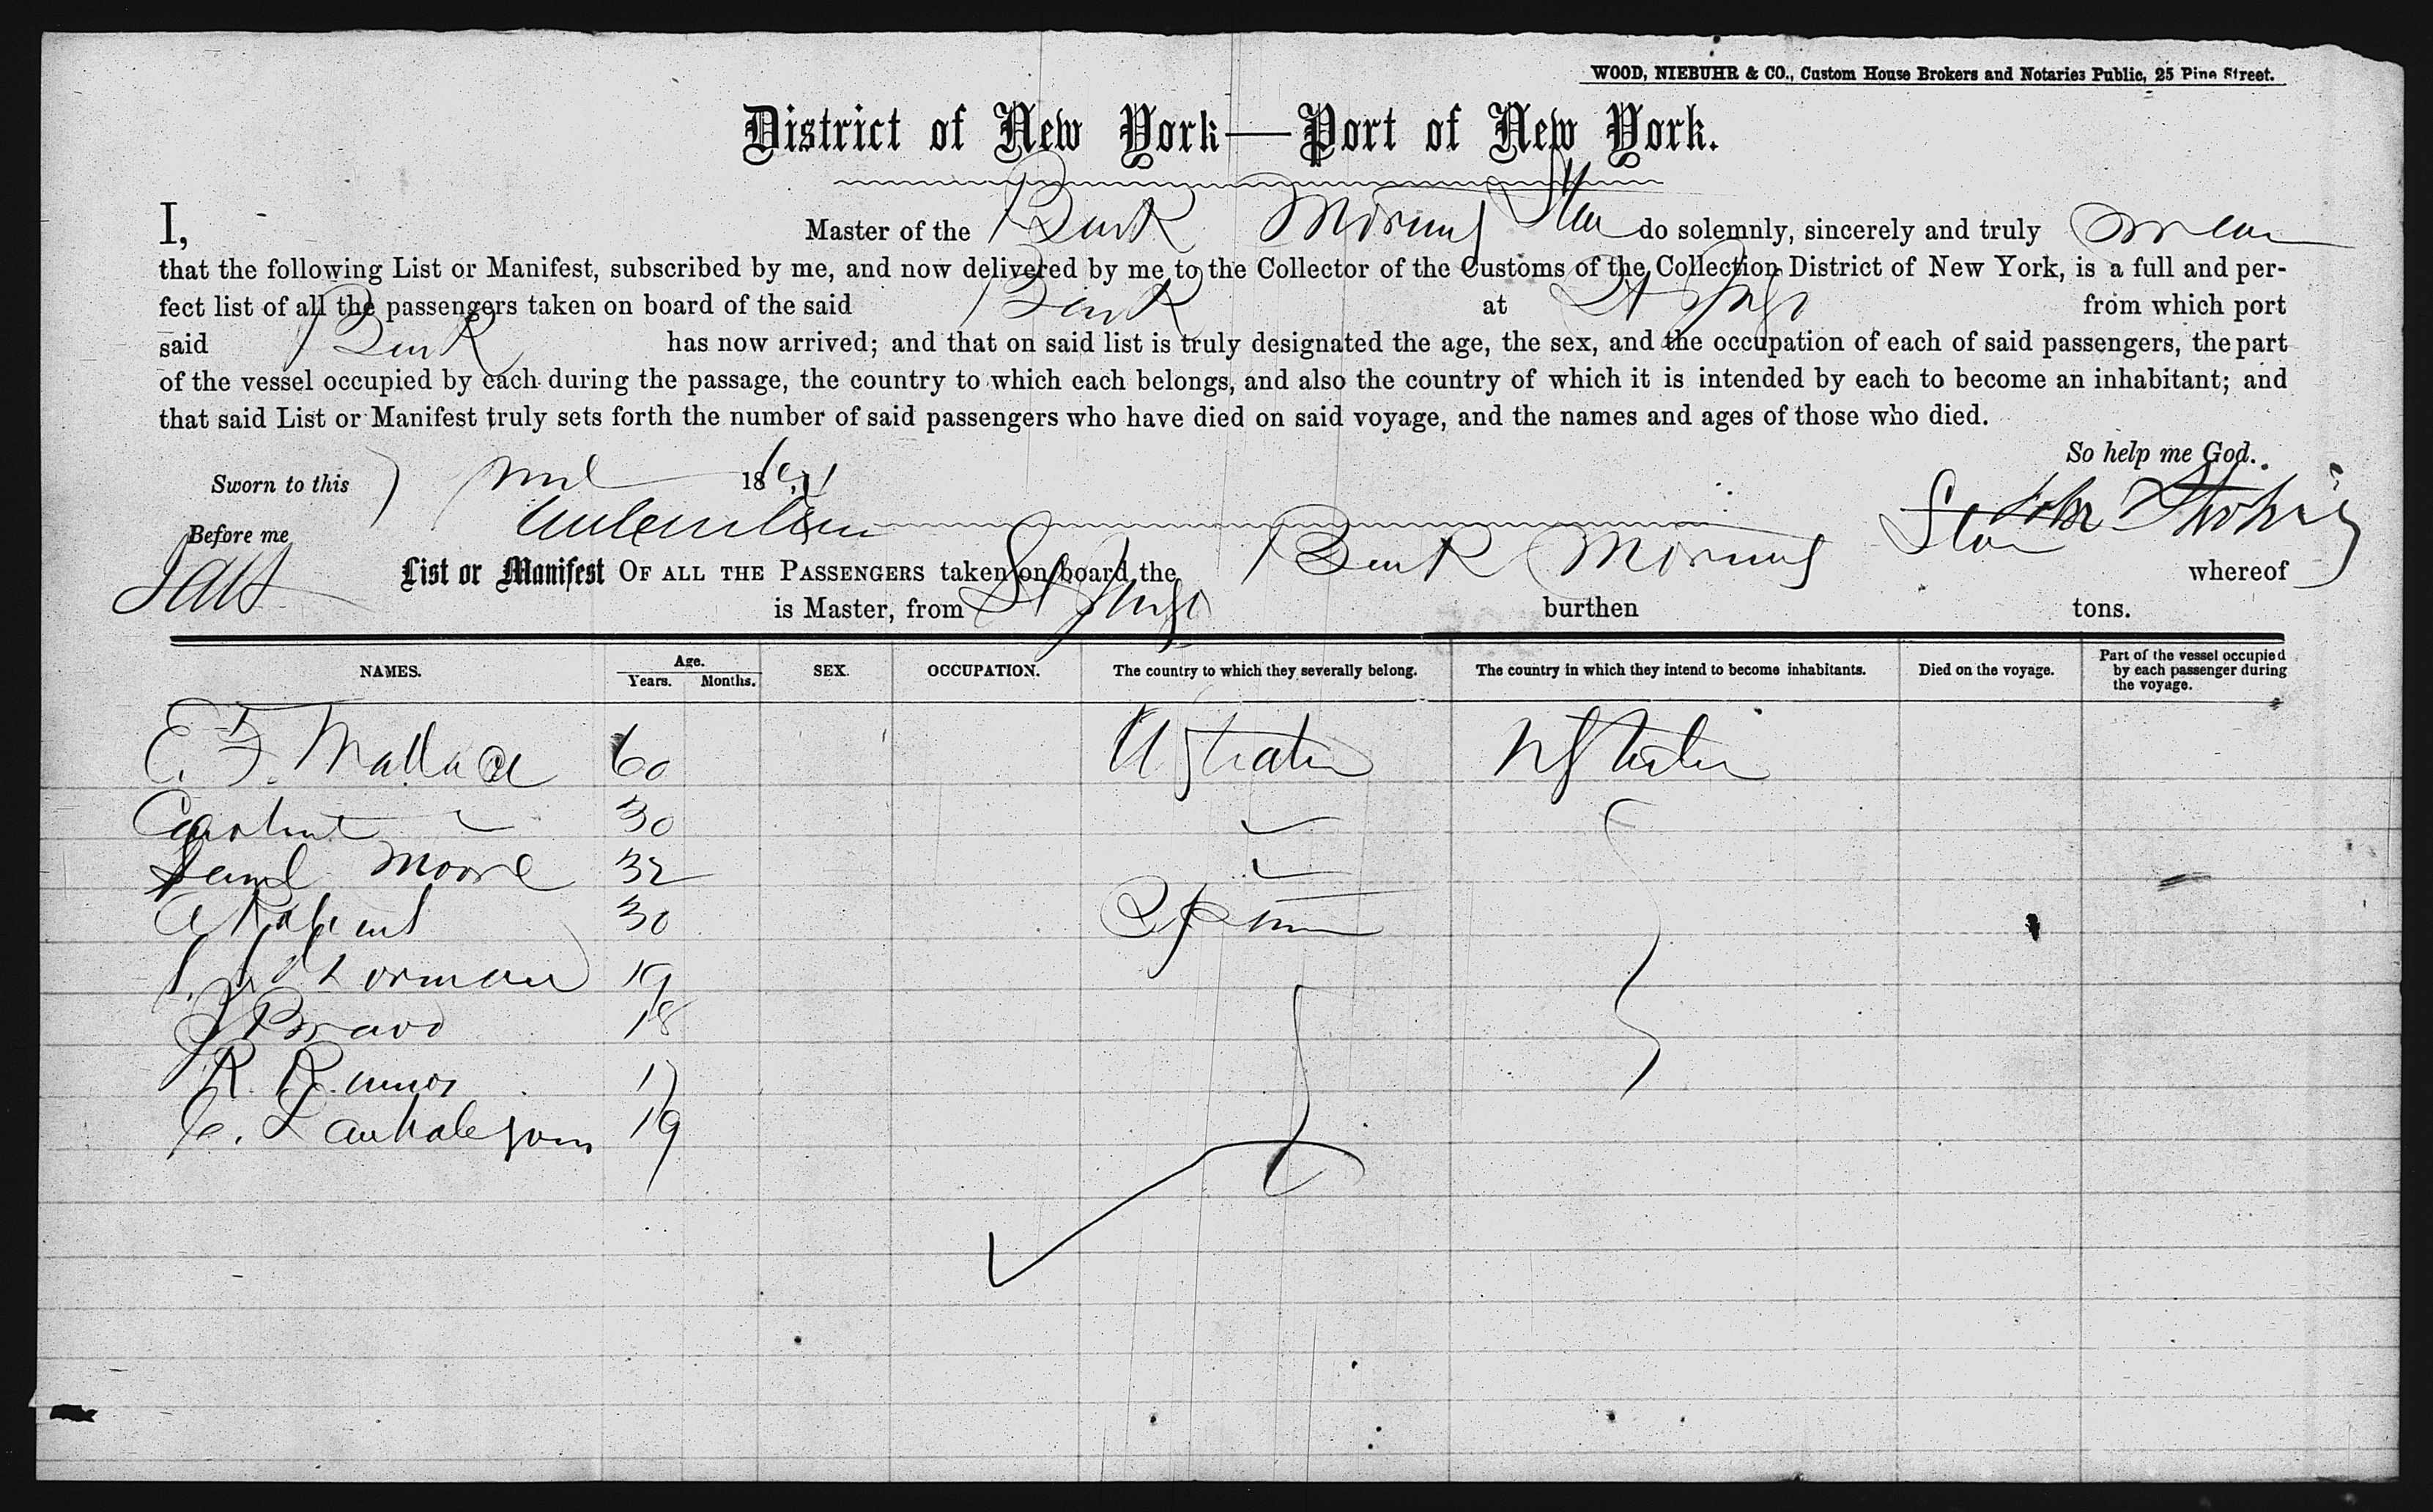 WOOD, NIEBUHR & CO., Custom House Brokers and Notaries Public, 25 Pine Street.
District of New York—Port of New York.
I, Master of the Bark Morning Star do solemnly, sincerely and truly swear
that the following List or Manifest, subscribed by me, and now delivered by me to the Collector of the Customs of the Collection District of New York, is a full and per-
fect list of all the passengers taken on board of the said Bark at St Jago from which port
said Bark has now arrived; and that on said list is truly designated the age, the sex, and the occupation of each of said passengers, the part
of the vessel occupied by each during the passage, the country to which each belongs, and also the country of which it is intended by each to become an inhabitant; and
that said List or Manifest truly sets forth the number of said passengers who have died on said voyage, and the names and ages of those who died.
So help me God.
Sworn to this 186
Before me
List or Manifest OF ALL THE PASSENGERS taken on board the Bark Morning Star whereof
is Master, from St Jago burthen tons.
NAMES. Age. Years. Months. SEX. OCCUPATION. The country to which they severally belong. The country in which they intend to become inhabitants. Died on the voyage. Part of the vessel occupied by each passenger during the voyage.
E. F. Wallace 60 U States U States
Caroline 30
Saml Moore 32
A 30 Spain
19
J Bravo 18
R. Ramos 17
C. 19